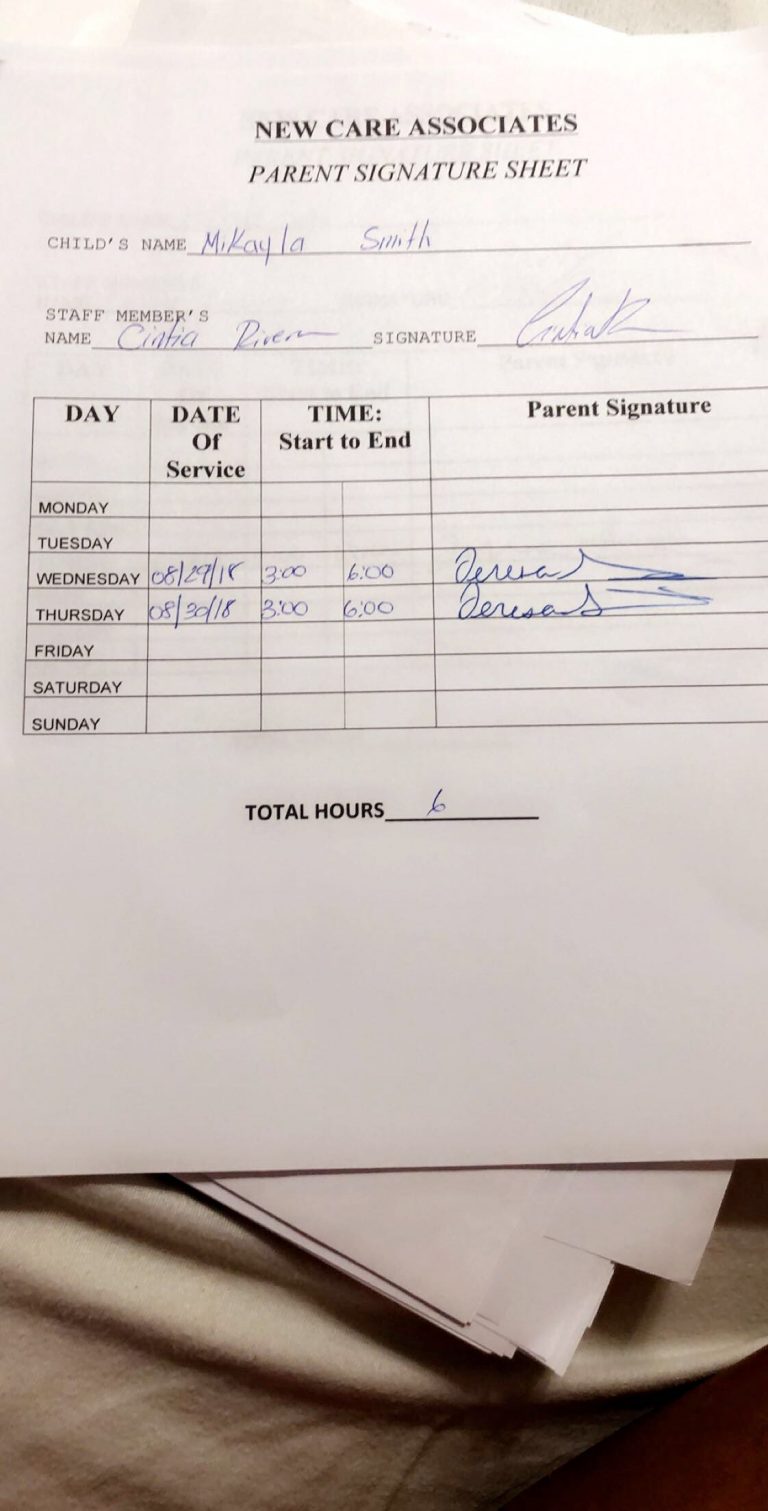 NEW CARE ASSOCIATES
PARENT SIGNATURE SHEET
CHILD'S NAME Mikayla Smith
STAFF MEMBER'S
NAME Cintia Rivera SIGNATURE
DAY DATE Of Service TIME: Start to End Parent Signature
MONDAY
TUESDAY
WEDNESDAY 08/29/18 3:00 6:00 Teresa S
THURSDAY 08/30/18 3:00 6:00 Teresa S
FRIDAY
SATURDAY
SUNDAY
TOTAL HOURS 6